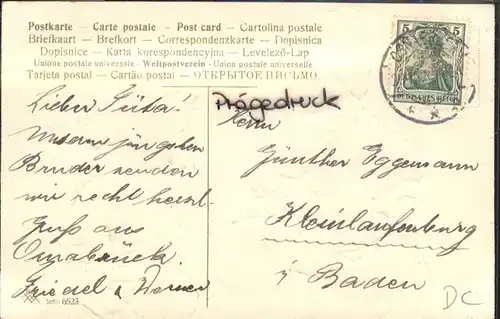 Postkarte – Carte postale – Post card – Cartolina postale
Briefkaart – Brefkort – Correspondenzkarte – Dopisnica
Dopisnice – Karta korespondencyjna – Levelező-Lap
Unione postale universale – Weltpostverein – Union postale universelle
Tarjeta postal – Cartão postal – ОТКРЫТОЕ ПИСЬМО.
5 5
DEUTSCHES REICH
Prägedruck
Lieber
Unserm jüngsten
Bruder senden
wir recht herzl.
Gruß aus
Osnabrück.
Friedel u Werner
Serie 6523
Herrn
Günther Eggemann
Kleinlaufenburg
i/ Baden
DC